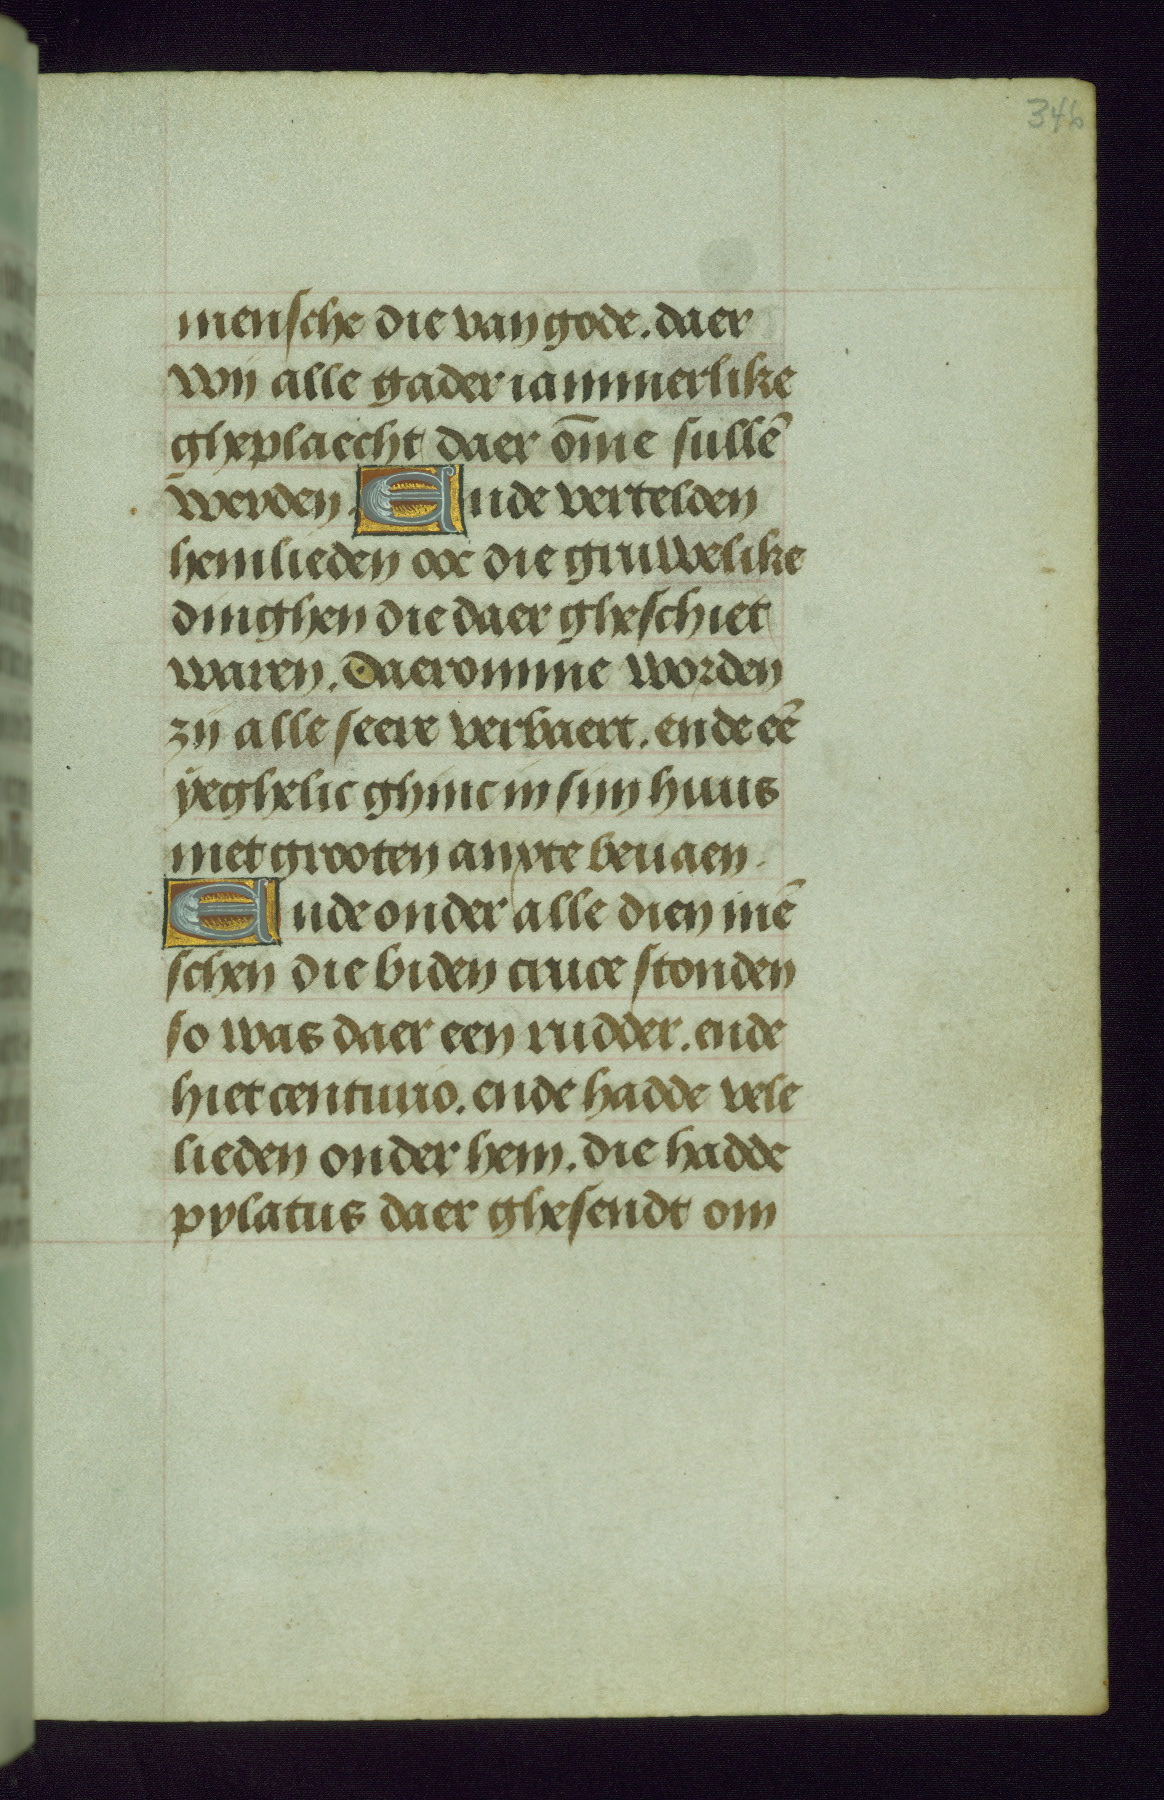 346
mensche die van gode. daer
wij alle gader iammerlike
gheplaecht daer ōme sullē
werden. Ende vertelden
hemlieden ooc die gruwelike
dinghen die daer gheschiet
waren. Daeromme worden
zij alle seere verbaert. ende eē
yeghelic ghinc in sijn huus
met grooten anxte beuaen.
Ende onder alle dien mē
schen die biden cruce stonden
so was daer een rudder. ende
hiet centurio. ende hadde vele
lieden onder hem. die hadde
pylatus daer ghesendt om